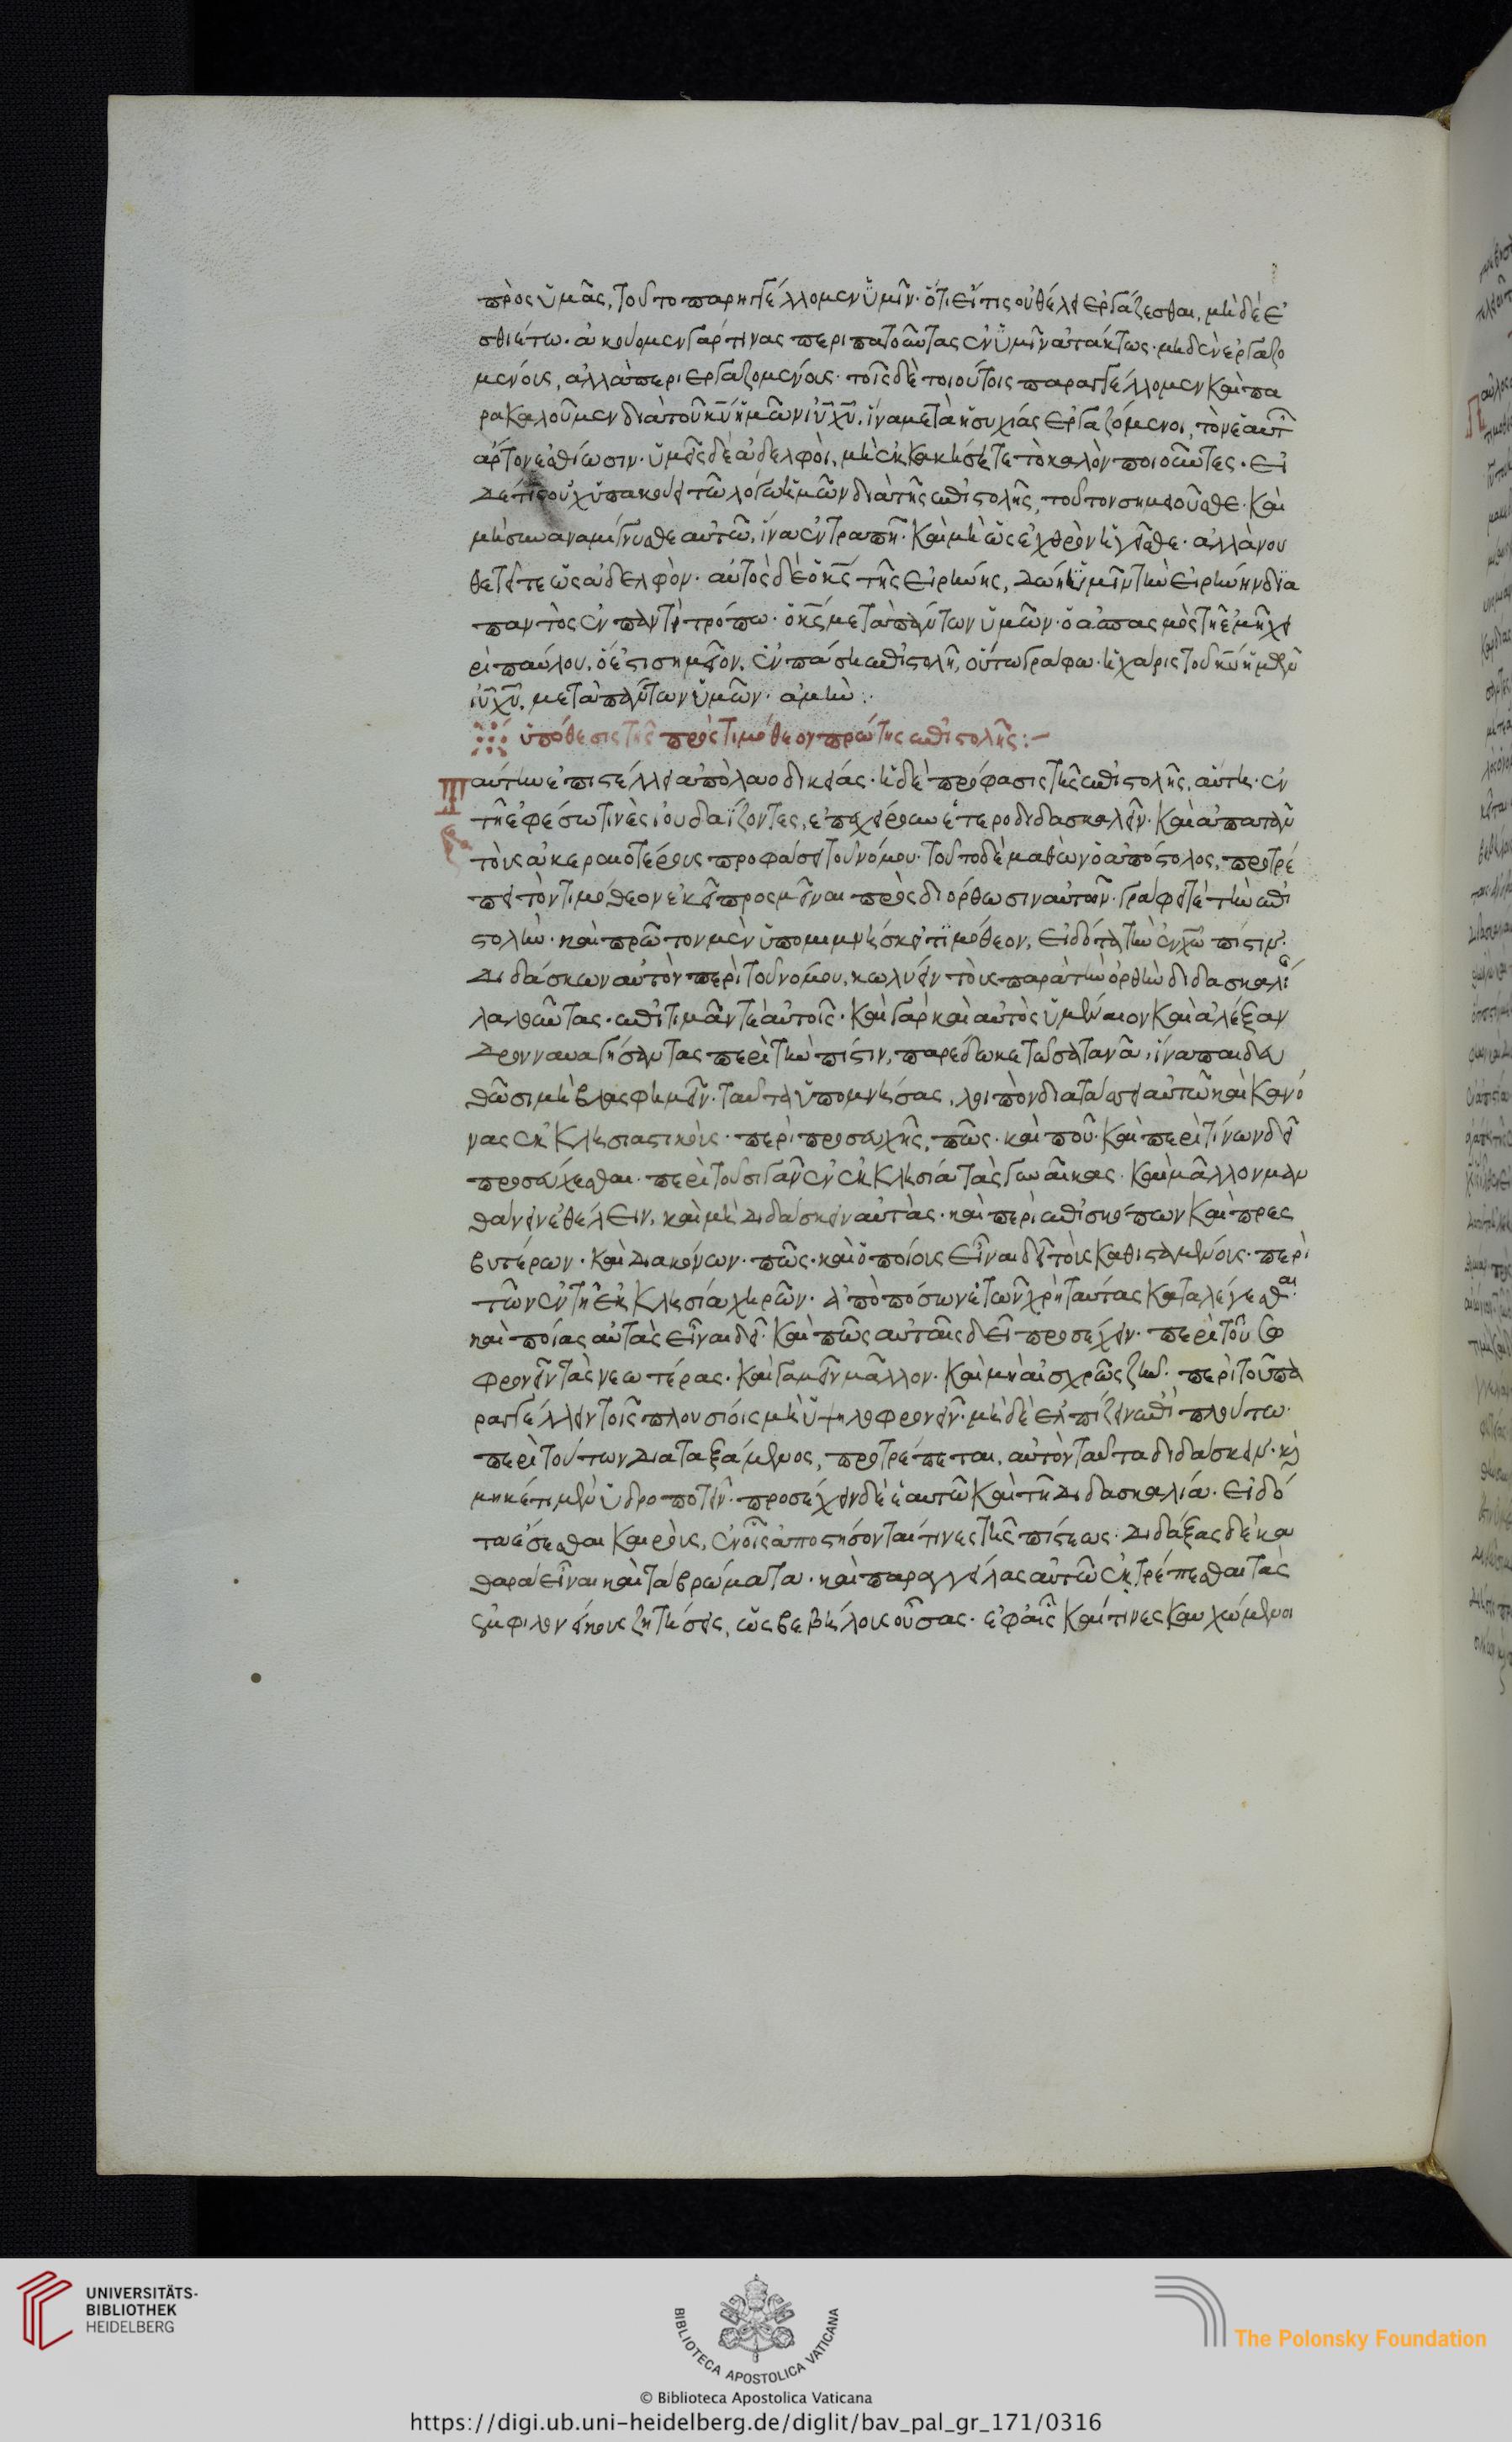 πρὸς ὑμᾶς, τοῦτο παρηγγέλλομεν ὑμῖν· ὅτι εἴ τις οὐ θέλει ἐργάζεσθαι, μηδὲ ἐ
σθιέτω· ἀκούομεν γάρ τινας περιπατοῦντας ἐν ὑμῖν ἀτάκτως· μηδὲν ἐργαζο
μένοις, ἀλλὰ περιεργαζομένους· τοῖς δὲ τοιούτοις παραγγέλλομεν καὶ πα
ρακαλοῦμεν διὰ τοῦ κυ ἡμῶν ιυ χυ, ἵνα μετὰ ἡσυχίας ἐργαζόμενοι, τὸν ἑαυτ
ἄρτον ἐσθίωσιν· ὑμεῖς δὲ ἀδελφοὶ, μὴ ἐκκακήσητε τὸ καλὸν ποιοῦντες· εἰ
δέ τις οὐχ ὑπακούει τῶ λόγω ἡμῶν διὰ τῆς ἐπιστολῆς, τοῦτον σημειοῦσθε· καὶ
μὴ συναναμίγνυσθε αὐτῶ, ἵνα ἐντραπῆ· καὶ μὴ ὡς ἐχθρὸν ἡγεῖσθε· ἀλλὰ νου
θετεῖτε ὡς ἀδελφόν· αὐτὸς δὲ ὁ κς τῆς εἰρήνης, δώη ὑμῖν τὴν εἰρήνην δια
παντὸς ἐν παντὶ τρόπω· ὁ κς μετὰ πάντων ὑμῶν· ὁ ἀσπασμὸς τῆ ἐμῆ χει
ρὶ παύλου, ὅ ἐστι σημεῖον, ἐν πάση ἐπιστολῆ, οὕτω γράφω· ἡ χάρις τοῦ κυ ἡμῶν
ιυ χυ, μετὰ πάντων ὑμῶν· ἀμήν:
ὑπόθεσις τῆς πρὸς τιμόθεον πρώτης ἐπιστολῆς:-
Ταύτην ἐπιστέλλει ἀπὸ λαοδικείας· ἡ δὲ πρόφασις τῆς ἐπιστολῆς, αὕτη· ἐν
τῆ ἐφέσω τινὲς ἰουδαΐζοντες, ἐπεχείρουν ἑτεροδιδασκαλεῖν· καὶ ἀπατᾶν
τοὺς ἀκεραιοτέρους προφάσει τοῦ νόμου· τοῦτο δὲ μαθὼν ὁ ἀπόστολος, προτρέ
πει τὸν τιμόθεον ἐκεῖ προσμεῖναι πρὸς διόρθωσιν αὐτῶν· γράφει τε τὴν ἐπι
στολήν· καὶ πρῶτον μὲν ὑπομιμνήσκει τιμόθεον, εἰδότα τὴν ἐν χω πίστιν·
διδάσκων αὐτὸν περὶ τοῦ νόμου, κωλύειν τοὺς παρὰ τὴν ὀρθὴν διδασκαλί
λαλοῦντας· ἐπιτιμᾶν τε αὐτοῖς· καὶ γὰρ καὶ αὐτὸς ὑμέναιον καὶ ἀλέξαν
δρον ναυαγήσαντας περὶ τὴν πίστιν, παρέδωκε τῶ σατανᾶ, ἵνα παιδευ
θῶσι μὴ βλασφημεῖν· ταῦτα ὑπομνήσας, λοιπὸν διατάσσει αὐτῶ καὶ κανό
νας ἐκκλησιαστικούς· περὶ προσευχῆς, πῶς· καὶ ποῦ· καὶ περὶ τίνων δεῖ
προσεύχεσθαι· περὶ τοῦ σιγᾶν ἐν ἐκκλησία τὰς γυναῖκας· καὶ μᾶλλον μαν
θάνειν ἐθέλειν, καὶ μὴ διδάσκειν αὐτάς· καὶ περὶ ἐπισκόπων καὶ πρεσ
βυτέρων· καὶ διακόνων· πῶς· καὶ ὁποίοις εἶναι δεῖ τοὺς καθισταμένους· περὶ
τῶν ἐν τῆ ἐκκλησία χηρῶν· ἀπὸ πόσων ἐτῶν χρὴ ταύτας καταλέγεσθαι·
καὶ ποίας αὐτὰς εἶναι δεῖ· καὶ πῶς αὐταῖς δεῖ προσέχειν· περὶ τοῦ σω
φρονεῖν τὰς νεωτέρας· καὶ γαμεῖν μᾶλλον· καὶ μὴ αἰσχρῶς ζῆν· περὶ τοῦ πα
ραγγέλλειν τοῖς πλουσίοις μὴ ὑψηλοφρονεῖν· μηδὲ ἐλπίζειν ἐπὶ πλούτω·
περὶ τούτων διαταξάμενος, προτρέπεται, αὐτὸν ταῦτα διδάσκειν· κὶ
μηκέτι μὲν ὑδροποτεῖν· προσέχειν δὲ ἑαυτῶ καὶ τῆ διδασκαλία· εἰδό
τα ἔσεσθαι καιροὺς, ἐν οἷς ἀποστήσονταί τινες τῆς πίστεως· διδάξας δὲ κα
θαρὰ εἶναι καὶ τὰ βρώματα· καὶ παραγγείλας αὐτῶ ἐκτρέπεσθαι τὰς
φιλονείκους ζητήσεις, ὡς βεβήλους οὔσας· ἐφ αἷς καί τινες καυχώμενοι
UNIVERSITÄTS-
BIBLIOTHEK
HEIDELBERG
BIBLIOTECA APOSTOLICA VATICANA
The Polonsky Foundation
© Biblioteca Apostolica Vaticana
https://digi.ub.uni-heidelberg.de/diglit/bav_pal_gr_171/0316